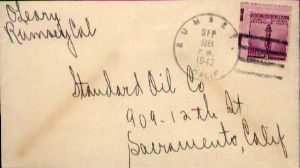 Geary
Rumsey Cal
RUMSEY
SEP
28
P.M.
1942
CALIF.
Standard Oil Co
909-12th St
Sacramento, Calif